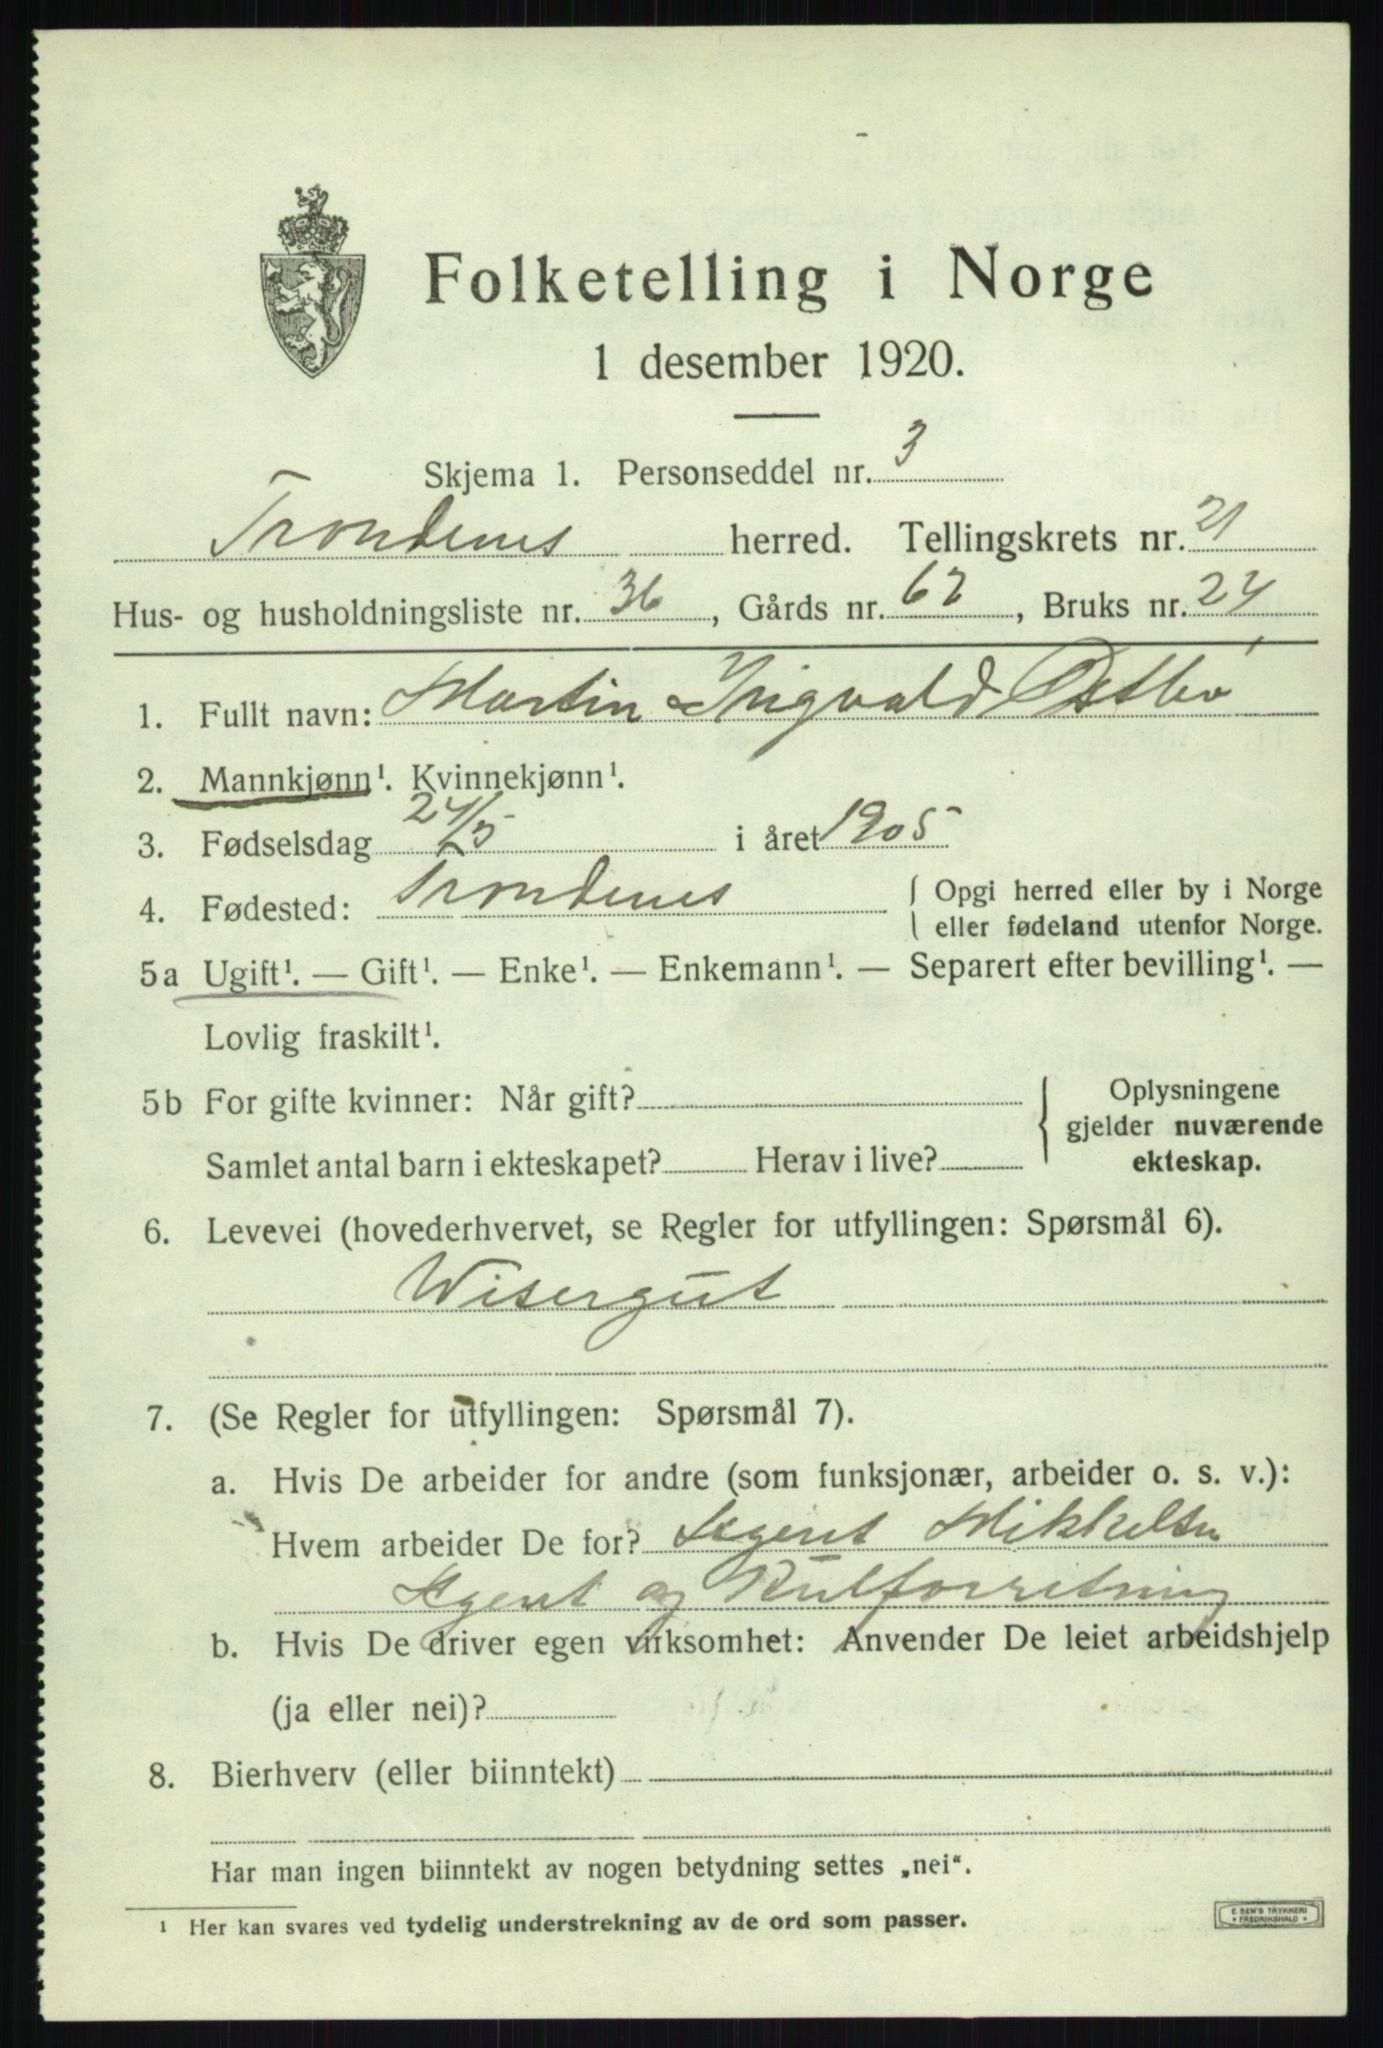 Folketelling i Norge
1 desember 1920.
Skjema 1. Personseddel nr. 3
Trondenes herred. Tellingskrets nr. 21
Hus- og husholdningsliste nr. 36, Gårds nr. 62, Bruks nr. 24
1. Fullt navn: Martin Ingvald Østbö
2. Mannkjønn¹. Kvinnekjønn¹.
3. Fødselsdag 24/5 i året 1905
4. Fødested: Trondenes { Opgi herred eller by i Norge
eller fødeland utenfor Norge.
5a Ugift¹. — Gift¹. — Enke¹. — Enkemann¹. — Separert efter bevilling¹. —
Lovlig fraskilt¹.
5b For gifte kvinner: Når gift? { Oplysningene
gjelder nuværende
Samlet antal barn i ekteskapet? Herav i live? ekteskap.
6. Levevei (hovederhvervet, se Regler for utfyllingen: Spørsmål 6).
Wisergut
7. (Se Regler for utfyllingen: Spørsmål 7).
a. Hvis De arbeider for andre (som funksjonær, arbeider o. s. v.):
Hvem arbeider De for? Agent Mikkelsen
Agent og Kulforretning
b. Hvis De driver egen virksomhet: Anvender De leiet arbeidshjelp
(ja eller nei)?
8. Bierhverv (eller biinntekt)
Har man ingen biinntekt av nogen betydning settes „nei“.
¹ Her kan svares ved tydelig understrekning av de ord som passer.
E. SEM'S TRYKKERI
* FREDRIKSHALD *